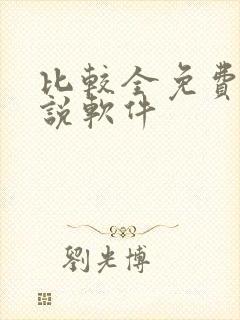 比較全免費
說軟件
劉光博